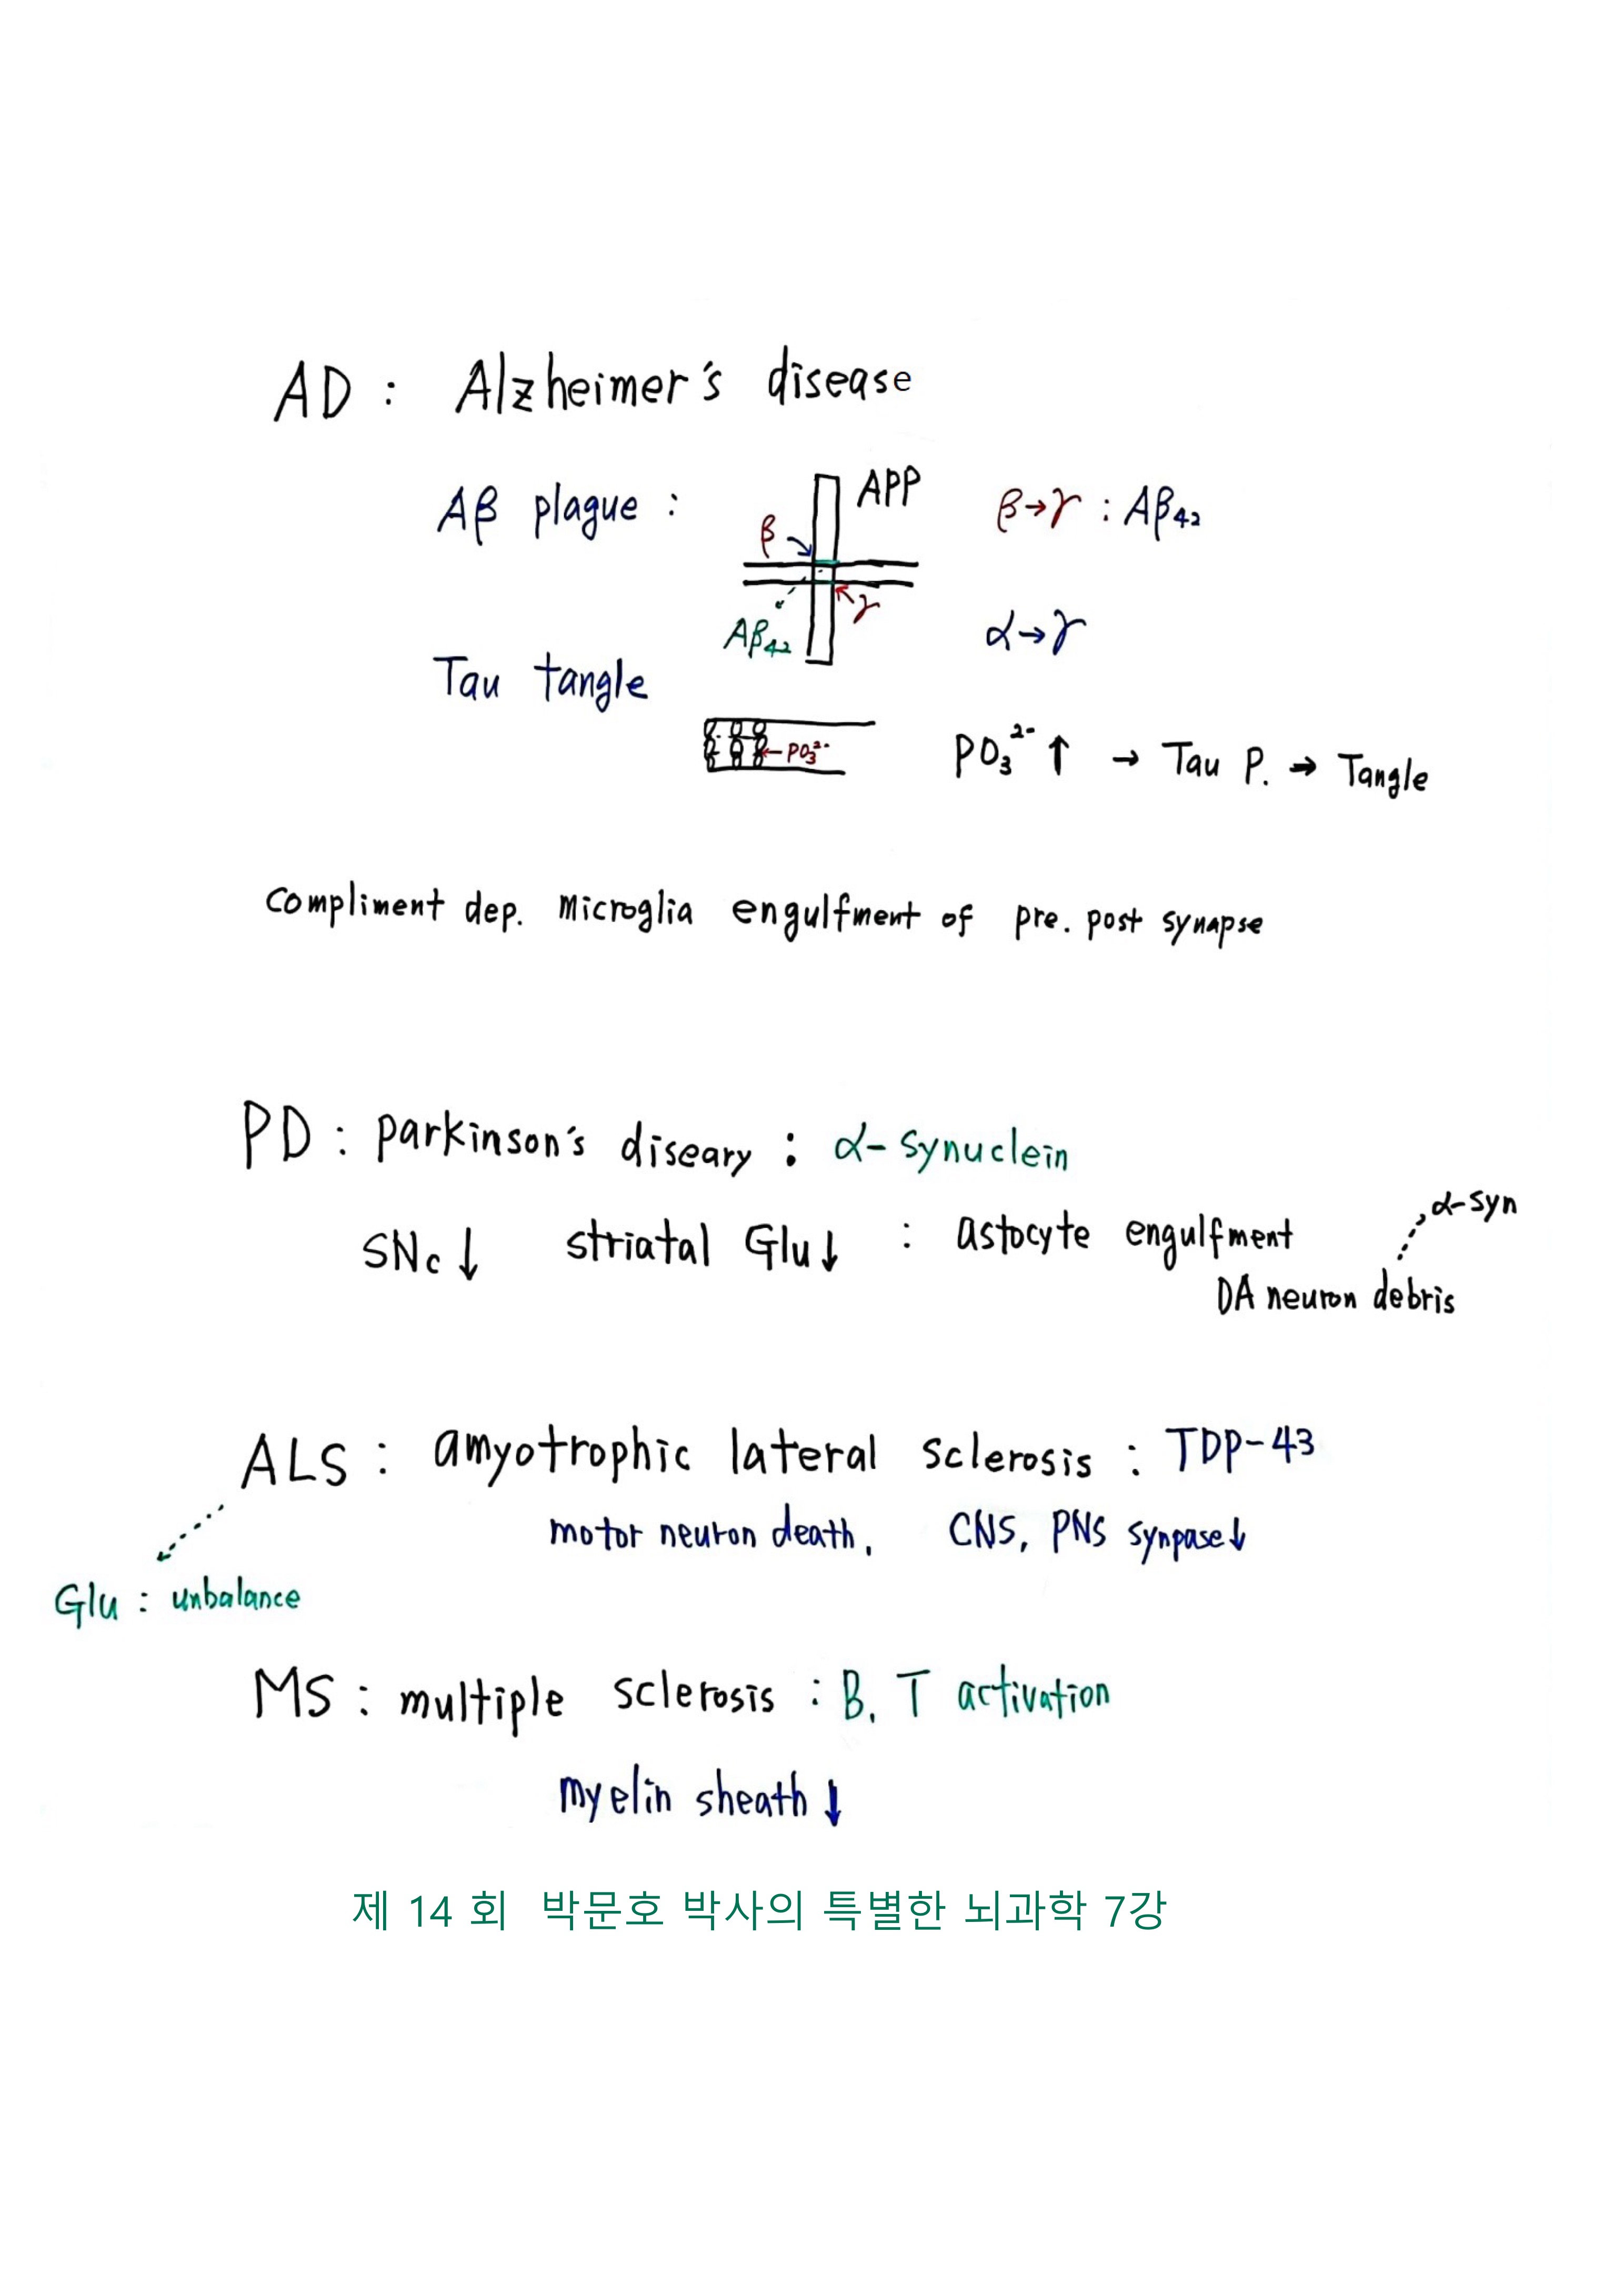 AD : Alzheimer's disease
Aβ plague :
APP
β→γ : Aβ42
β
γ
Aβ42
α→γ
Tau tangle
PO3 2-
PO3 2- ↑ → Tau P. → Tangle
compliment dep. microglia engulfment of pre. post synapse
PD : parkinson's diseary : α-synuclein
SNc↓ striatal Glu↓ : astocyte engulfment
α-syn
DA neuron debris
ALS : amyotrophic lateral sclerosis : TDP-43
motor neuron death, CNS, PNS synpase↓
Glu : unbalance
MS : multiple sclerosis : B, T activation
myelin sheath↓
제 14 회 박문호 박사의 특별한 뇌과학 7강